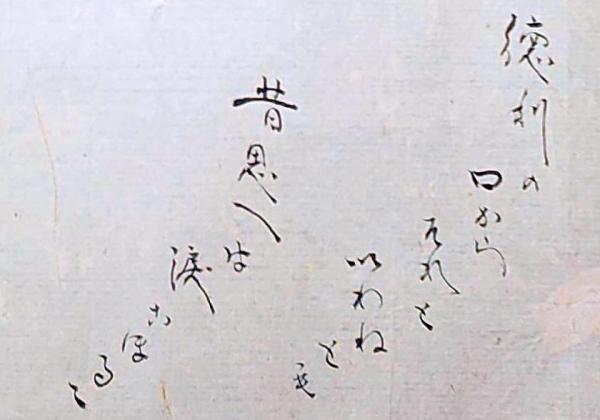 徳利の
口から
それと
いわね
とも
昔思へは
涙
こほるゝ